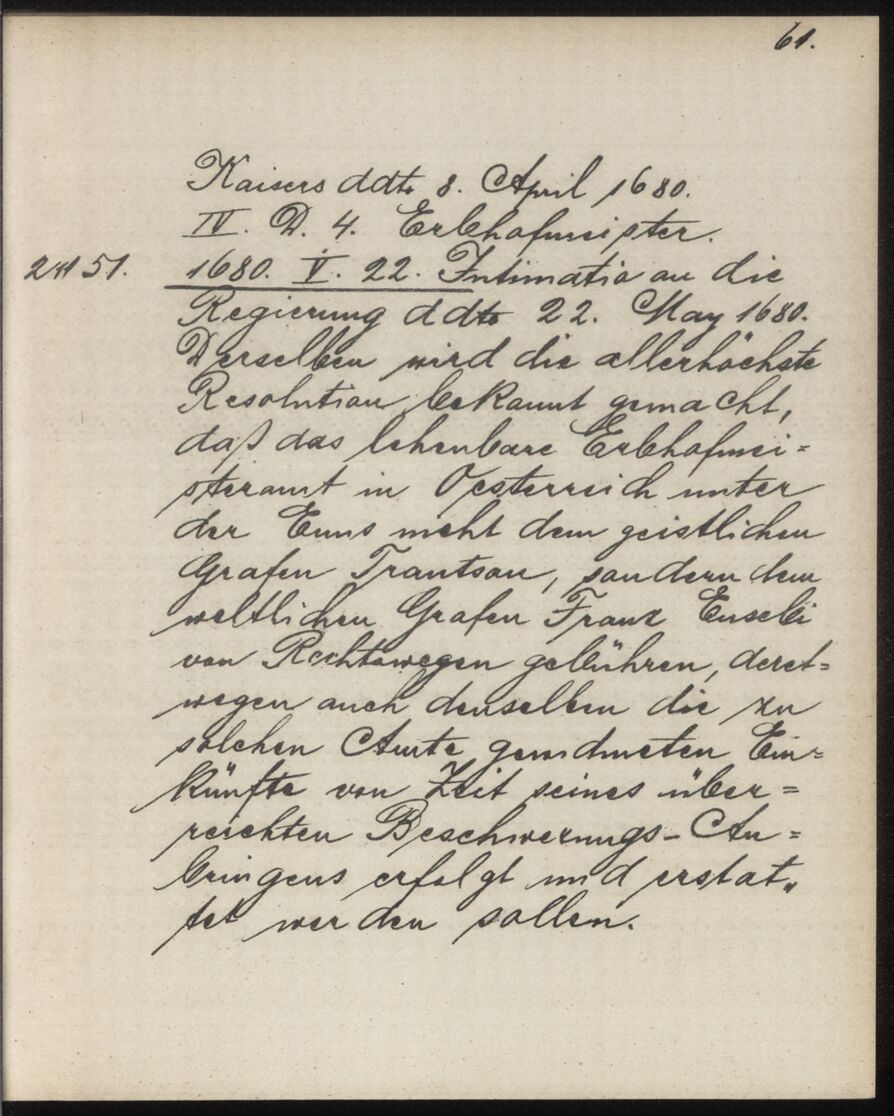 61.
Kaisers ddto 8. April 1680.
IV. D. 4. Erbhofmeister.
51. 1680. V. 22. Intimatio an die
Regierung ddto 22. May 1680.
Derselben wird die allerhöchste
Resolution bekannt gemacht,
daß das lehenbare Erbhofmei=
steramt in Oesterreich unter
der Enns nicht dem geistlichen
Grafen Trautson, sondern dem
weltlichen Grafen Franz Eusebi
von Rechtswegen gebühren, deret=
wegen auch denselben die zu
solchen Amte geordneten Ein=
künfte von Zeit seines über=
reichten Beschwerungs-An=
bringens erfolgt und erstat„
tet werden sollen.